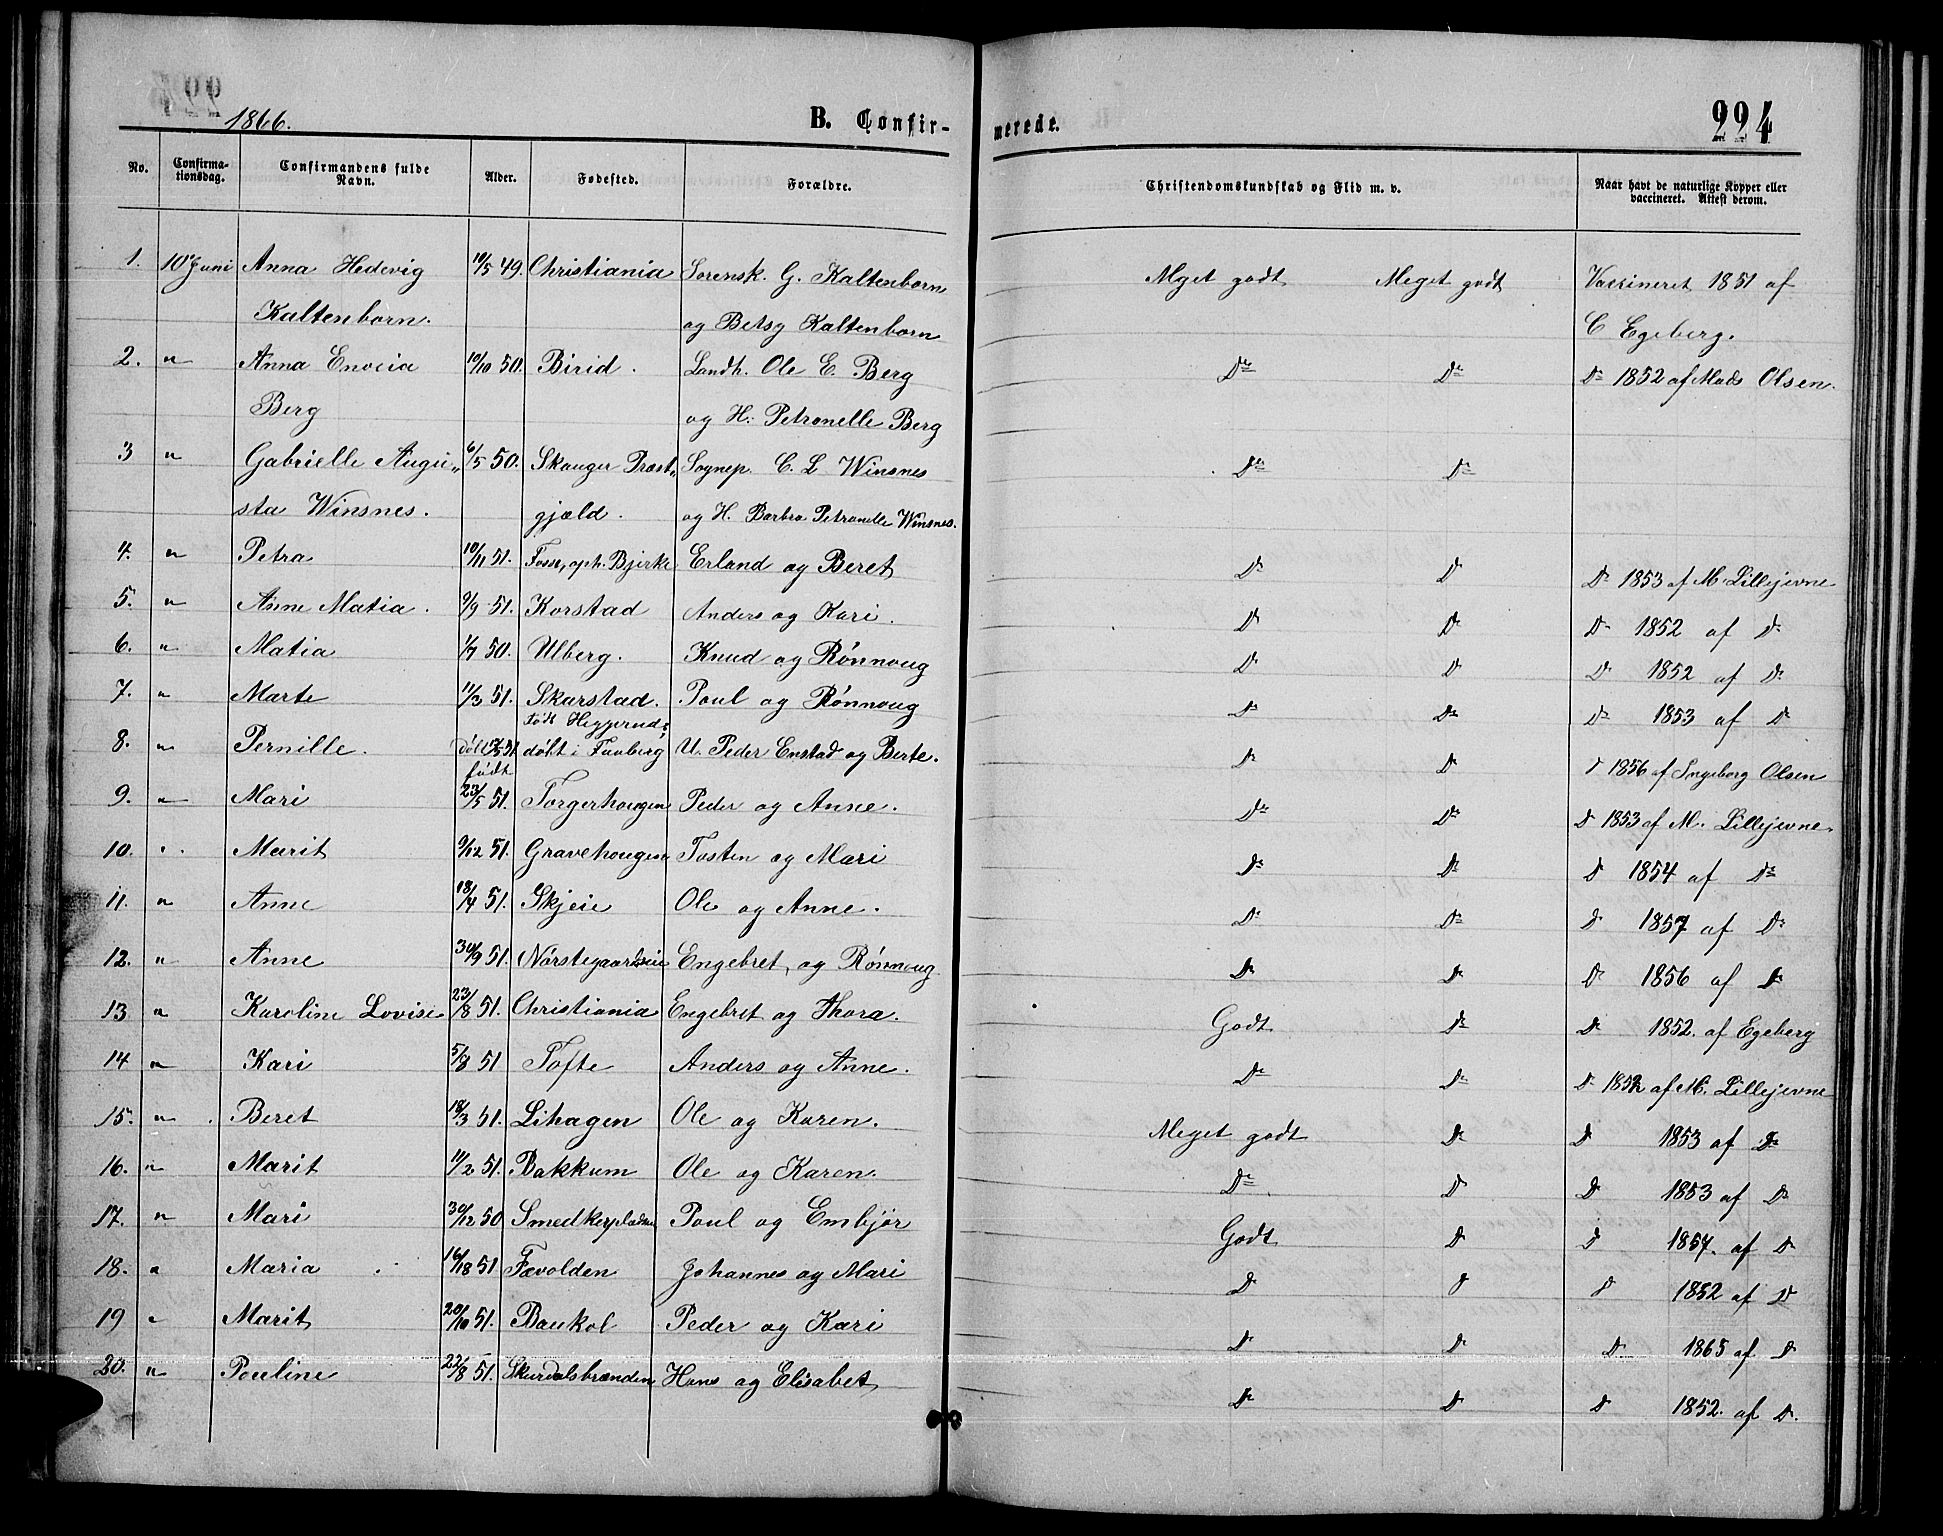 1866.
B. Confir-
merede.
224
No.
Confirma-
tionsdag.
Confirmandens fulde
Navn.
Alder.
Fødested.
Forældre.
Christendomskundskab og Flid m. v.
Naar havt de naturlige Kopper eller
vaccineret. Attest derom.
1. 10 Juni Anna Hedevig 10/5 49. Christiania Sorensk. G. Kaltenborn Meget godt Meget godt Vaccineret 1851 af
Kaltenborn. og Betsy Kaltenborn C Egeberg.
2. " Anna Enocia 10/10 50. Birid. Landh. Ole E. Berg Do Do Do 1852 af Mads Olsen.
Berg og H. Petronelle Berg
3 " Gabrielle Augu- 6/5 50. Skauger Præst- Sognep. C. L. Winsnes Do Do
sta Winsnes. gjæld. og H. Barbra Petronelle Winsnes.
4. " Petra 10/11 51. Fosse, oph. Bjerke Erland og Beret Do Do Do 1853 af M. Lillejevne
5. " Anne Matia. 9/9 51. Korstad Anders og Kari. Do Do Do 1852 af Do
6. " Matia 1/7 50. Ulberg. Knud og Rønnoug Do Do Do 1852 af Do
7. " Marte 11/3 51. Skarstad. Poul og Rønnoug Do Do Do 1853 af Do
født Heggerud;
8. " Pernille. døbt i Faaberg U. Peder Enstad og Berte. Do Do Do 1856 af Ingeborg Olsen
født
9. " Mari 23/5 51. Torgerhougen Peder og Anne. Do Do Do 1853 af M. Lillejevne.
10. " Marit 9/12 51. Gravehougen Tosten og Mari Do Do Do 1854 af Do
11. " Anne 18/4 51. Skjeie Ole og Anne. Do Do Do 1857 af Do
12. " Anne 30/9 51. Nørstegaardseie Engebret og Rønnoug Do Do Do 1856 af Do
13 " Karoline Lovise 23/8 51. Christiania Engebret og Thora. Godt Do Do 1852. af Egeberg
14 " Kari 5/8 51 Tofte Anders og Anne. Do Do Do 1852 af M. Lillejevne
15. " Beret 18/3 51. Lihagen Ole og Karen. Meget godt Do Do 1853 af Do
16. " Marit 11/2 51. Bakkum Ole og Karen. Do Do Do 1853 af Do
17. " Mari 30/12 50 Smedkerpladsen Poul og Embjør Godt Do Do 1857. af Do
18. " Maria 16/8 51 Fævolden Johannes og Mari Do Do Do 1852 af Do
19 " Marit 20/10 51. Baukol Peder og Kari Do Do Do 1865 af Do
20. " Pauline 22/8 51. Skurdalsbrænden Hans og Elisabet Do Do Do 1852. af Do.